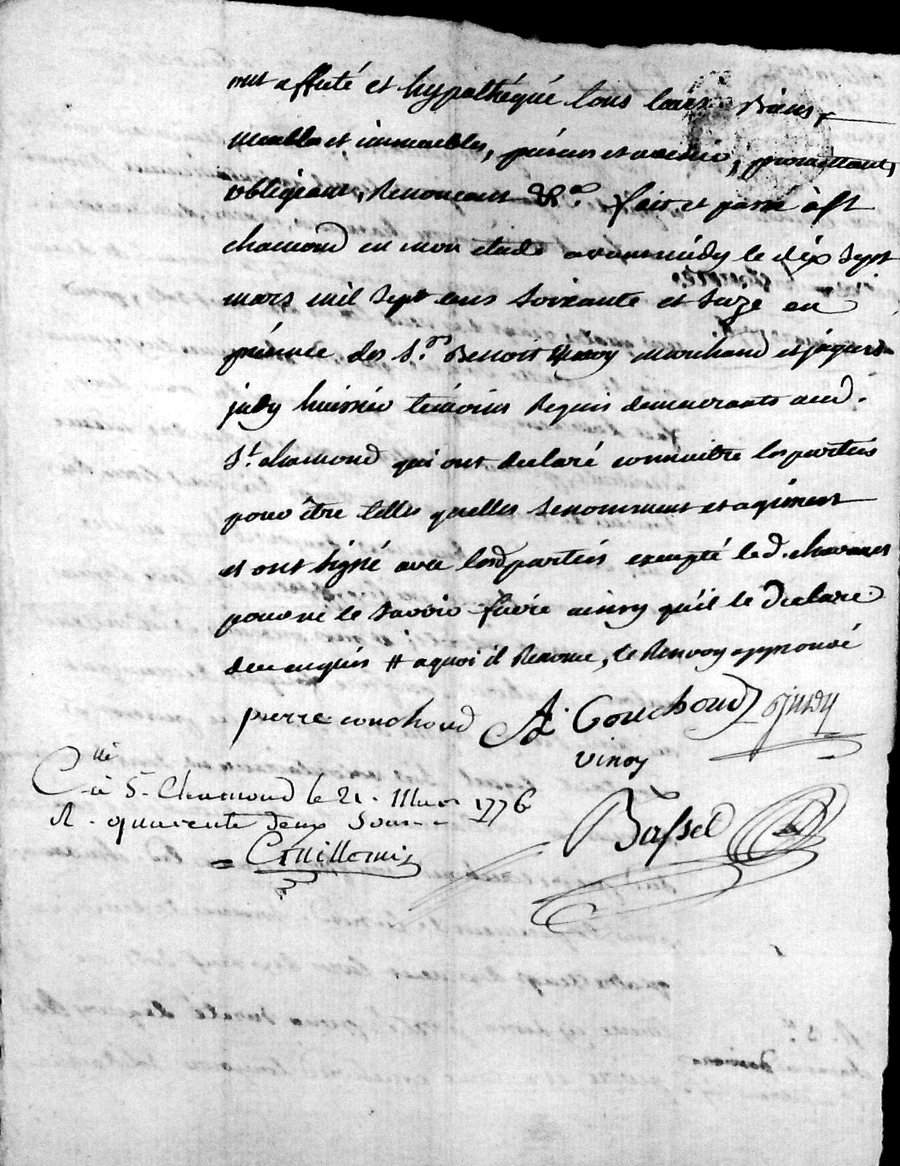 ont affecté et hypothéqué tous leurs Biens,
meubles et immeubles, présens et avenir, promettant,
obligeant, Renonçant &c.ª fait et passé à St
chamond en mon étude avant midy le dix sept
mars mil sept cens Soixante et Seize en
présence des S.rs Benoit vinoy marchand et jacques
judy huissier témoins Requis demeurants aud.
St. chamond qui ont déclaré connaitre les parties
pour être telles quelles Se nomment et agissent
et ont Signé avec lesd parties excepté led. chavanes
pour ne le Savoir faire ainsy qu'il le déclare
de ce enquis # a quoi il Renonce, le Renvoy approuvé
pierre couchoud A. Couchoud judy
vinoy
C.llé
à St. Chamond le 21. Mars 1776
R. quarente deux Sous
Guillemin
Bassel